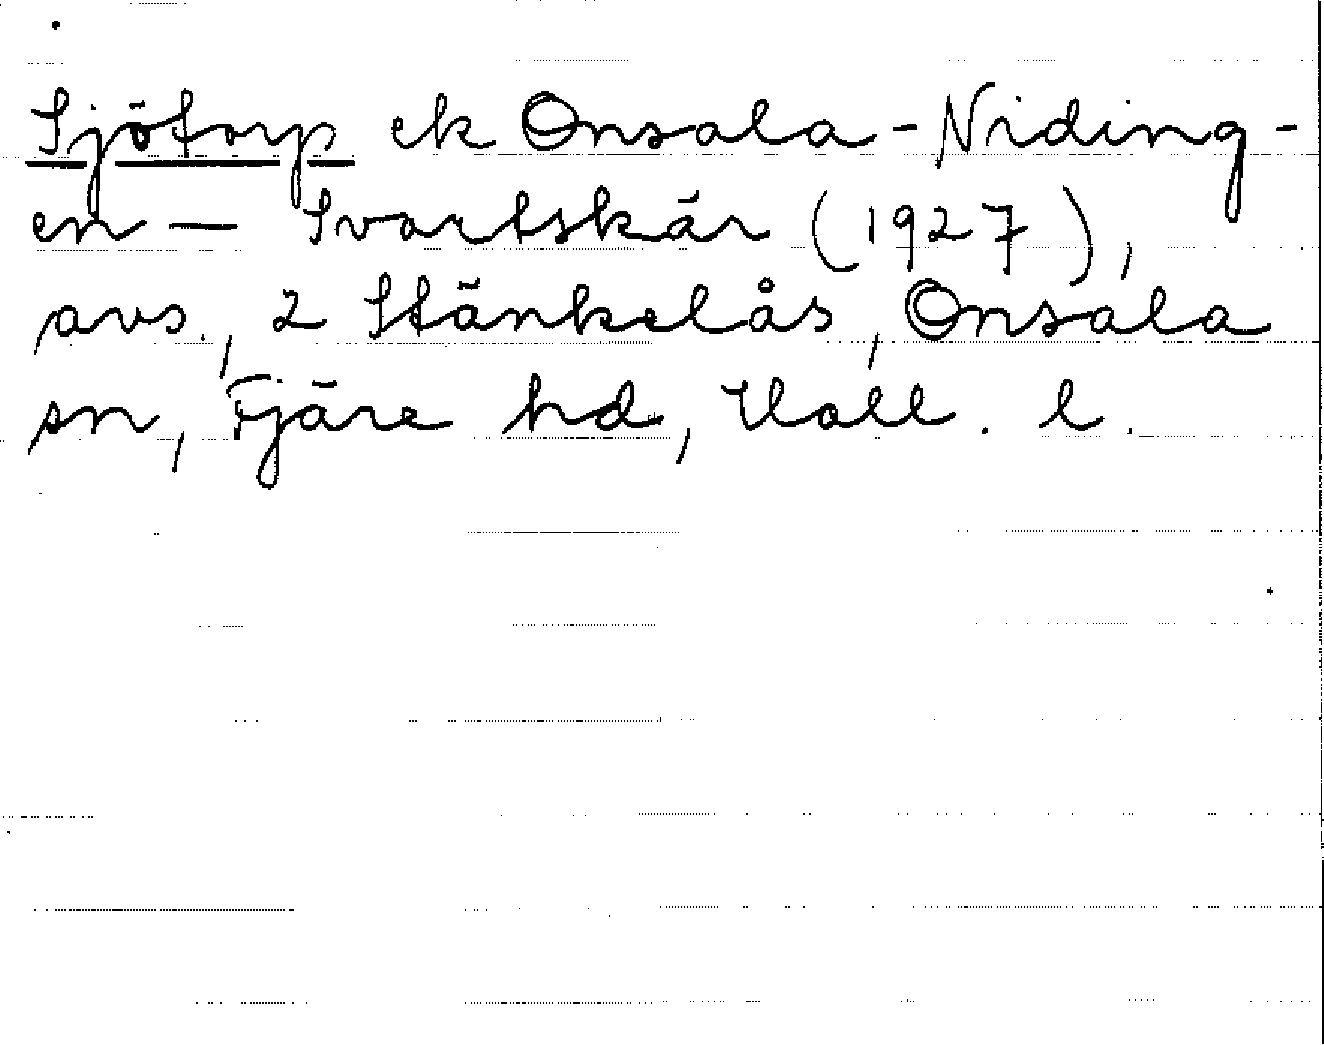 Sjötorp ek Onsala - Niding-
en — Svartskär (1927),
avs., 2 Stänkelås, Onsala
sn, Fjäre hd, Hall. l.